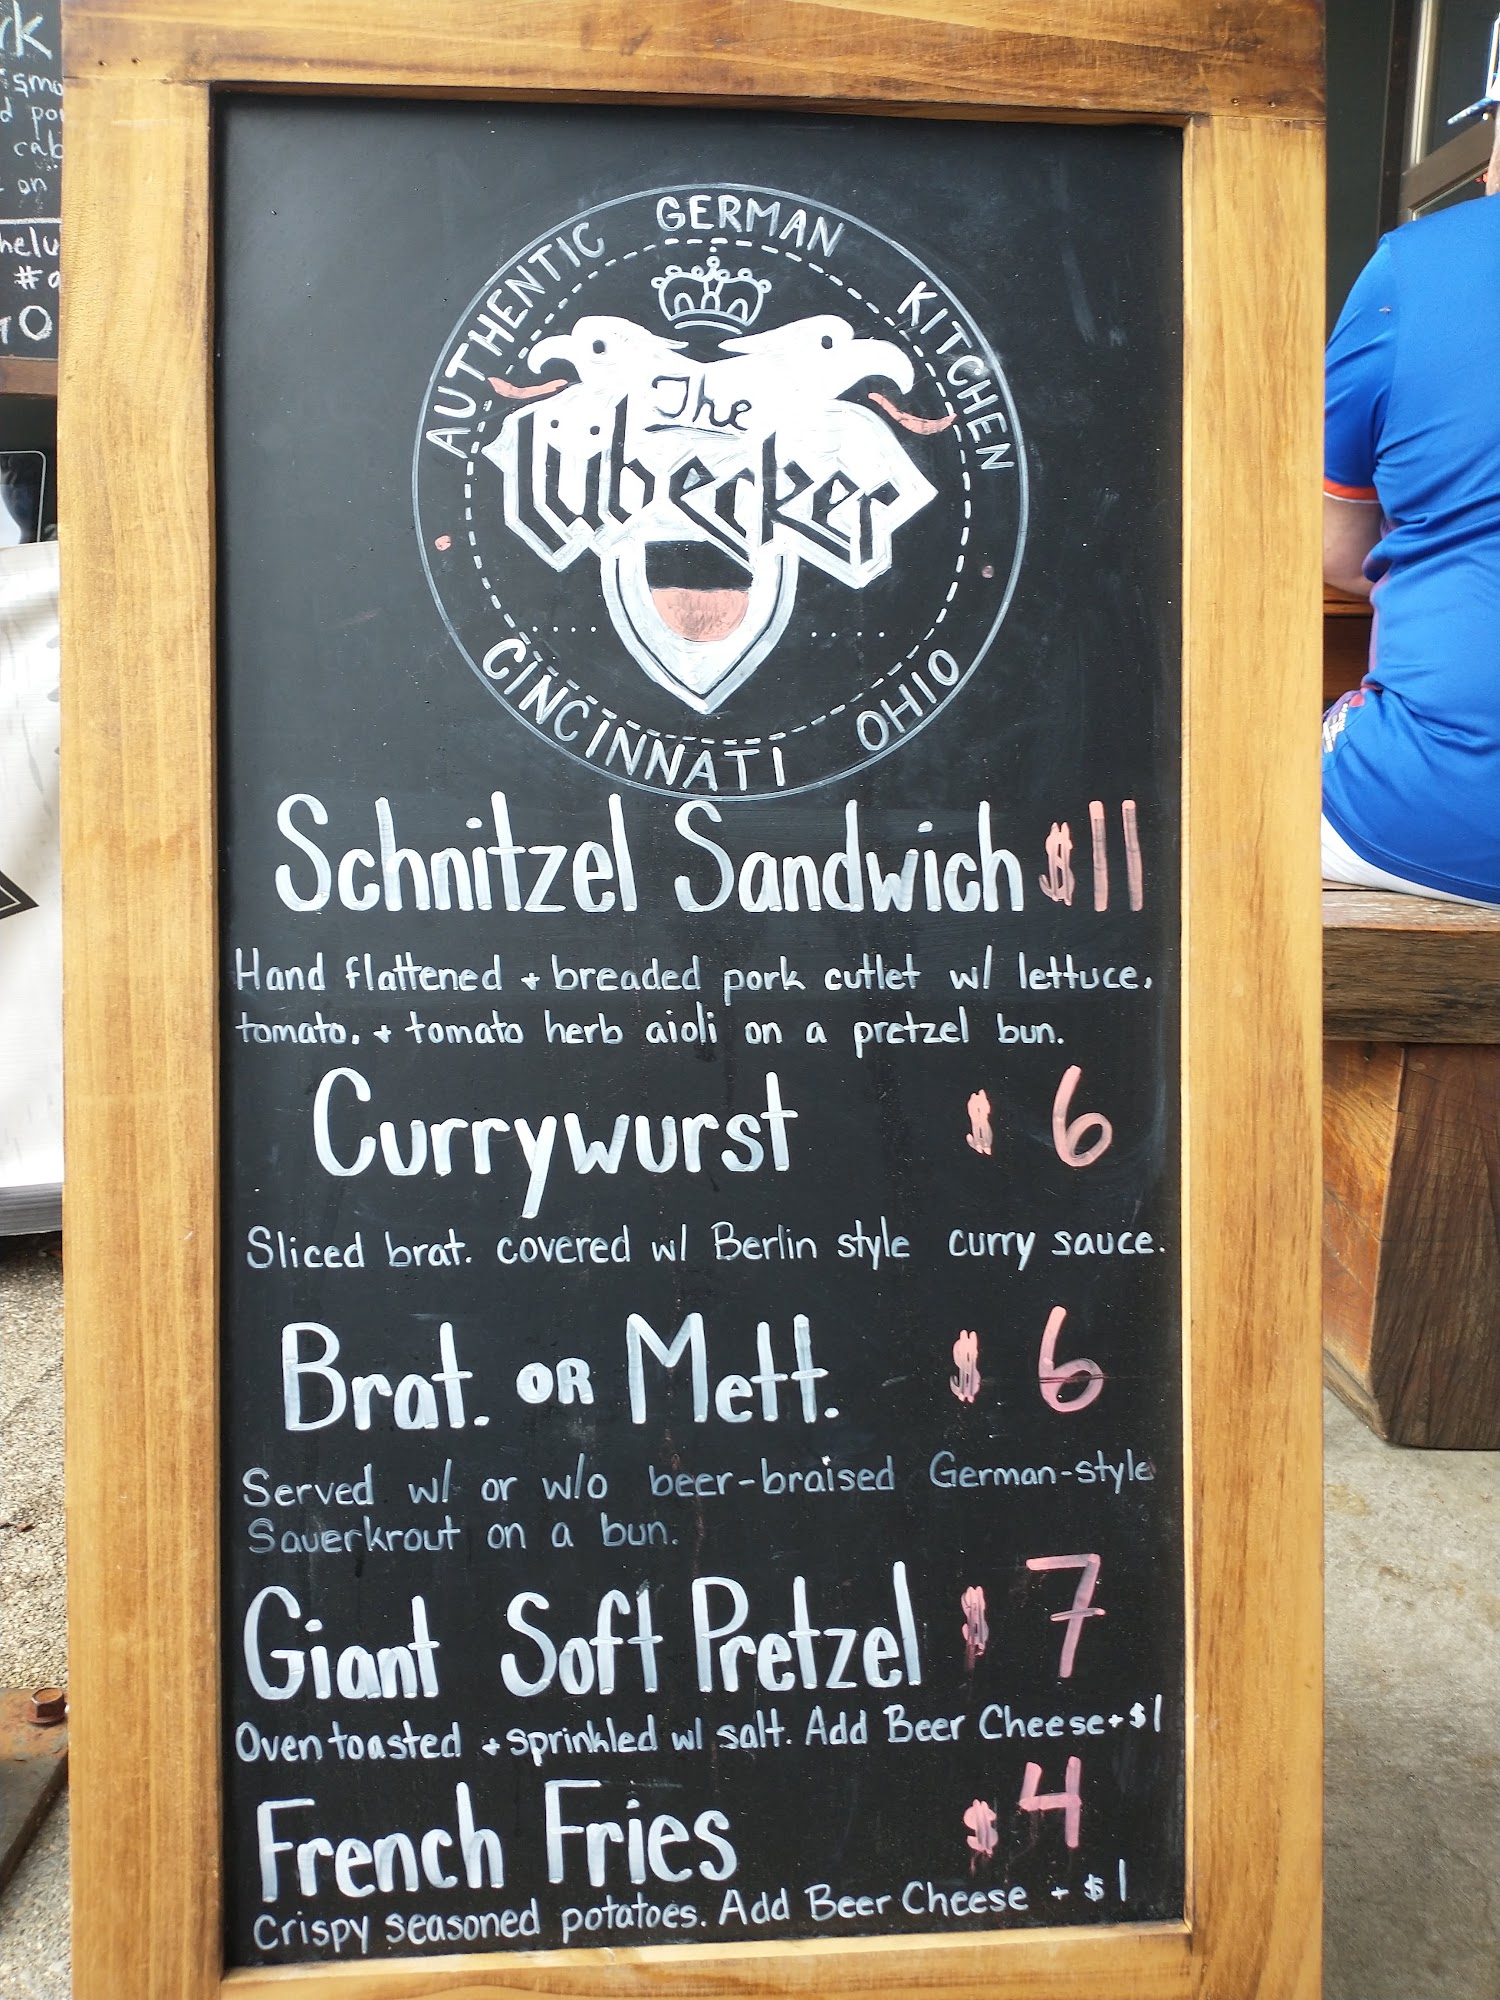 rk
smo
d por
cab
on
helu
#a
GO
AUTHENTIC GERMAN KITCHEN
The
Lübecker
CINCINNATI OHIO
Schnitzel Sandwich $11
Hand flattened + breaded pork cutlet w/ lettuce,
tomato, + tomato herb aioli on a pretzel bun.
Currywurst $6
Sliced brat. covered w/ Berlin style curry sauce.
Brat. OR Mett. $6
Served w/ or w/o beer-braised German-style
Sauerkrout on a bun.
Giant Soft Pretzel $7
Oven toasted + sprinkled w/ salt. Add Beer Cheese + $1
French Fries $4
Crispy seasoned potatoes. Add Beer Cheese + $1